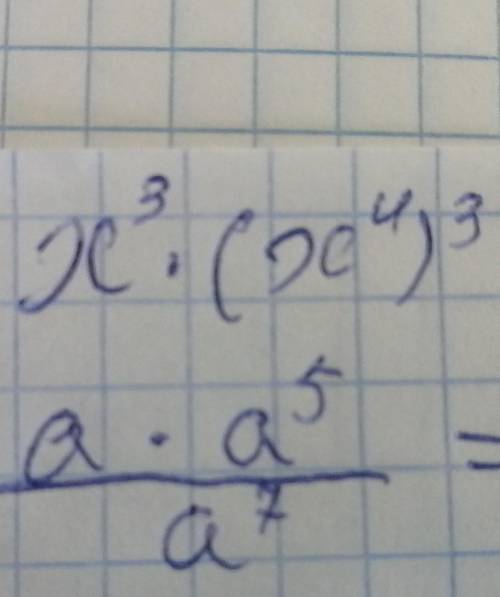 x³ · (x⁴)³
a · a⁵ / a⁷ =